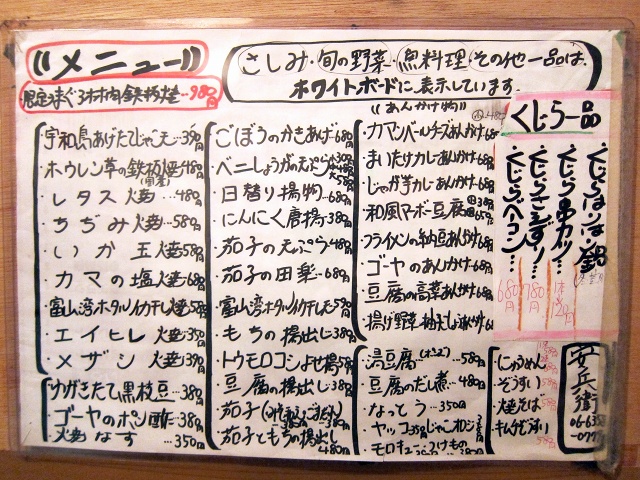 メニュー
さしみ・旬の野菜・魚料理・その他一品は、
ホワイトボードに表示しています。
宇和島あげたてじゃこ天…390円
ホウレン草の鉄板焼 480円
レタス焼……480円
ちぢみ焼……580円
いか玉焼 580円
カマの塩焼 680円
富山湾ホタルイカ干し焼 580円
エイヒレ焼 350円
メザシ焼 390円
ゆがきたて黒枝豆…380円
ゴーヤのポン酢…380円
焼なす……350円
ごぼうのかきあげ 680円
ベニしょうがの天ぷら
日替り揚物…680円
にんにく唐揚 380円
茄子の天ぷら 480円
茄子の田楽…680円
富山湾ホタルイカ干し天 590円
もちの揚出し 380円
トウモロコシよせ揚 580円
豆腐の揚出し 380円
茄子ともちの揚出し 480円
(あんかけ物)
カマンベールチーズあんかけ 680
まいたけカレーあんかけ 680
じゃが芋カレーあんかけ 680
和風マーボー豆腐
フライメンの納豆あんかけ 680
ゴーヤのあんかけ 680
豆腐の高菜あんかけ 680
揚げ野菜
湯豆腐 …580円
豆腐のだし煮…480円
なっとう…350円
ヤッコ 350円
モロキュー
くじら一品
くじらはりはり鍋
くじら串カツ…
くじらさえずり…780円
くじらベーコン…680円
にゅうめん
ぞうすい
焼そば
キムチぞうすい
安兵衛